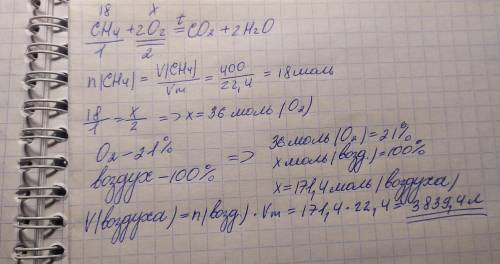 18 x
CH₄ + 2O₂ =ᵗ CO₂ + 2H₂O
1 2
n(CH₄) = V(CH₄)/Vm = 400/22,4 = 18моль
18/1 = x/2 => x = 36 моль (O₂)
O₂ - 21% => 36 моль (O₂) = 21%
воздух - 100% x моль (возд.) = 100%
x = 171,4 моль (воздуха)
V(воздуха) = n(возд.) · Vm = 171,4 · 22,4 = 3839,4 л